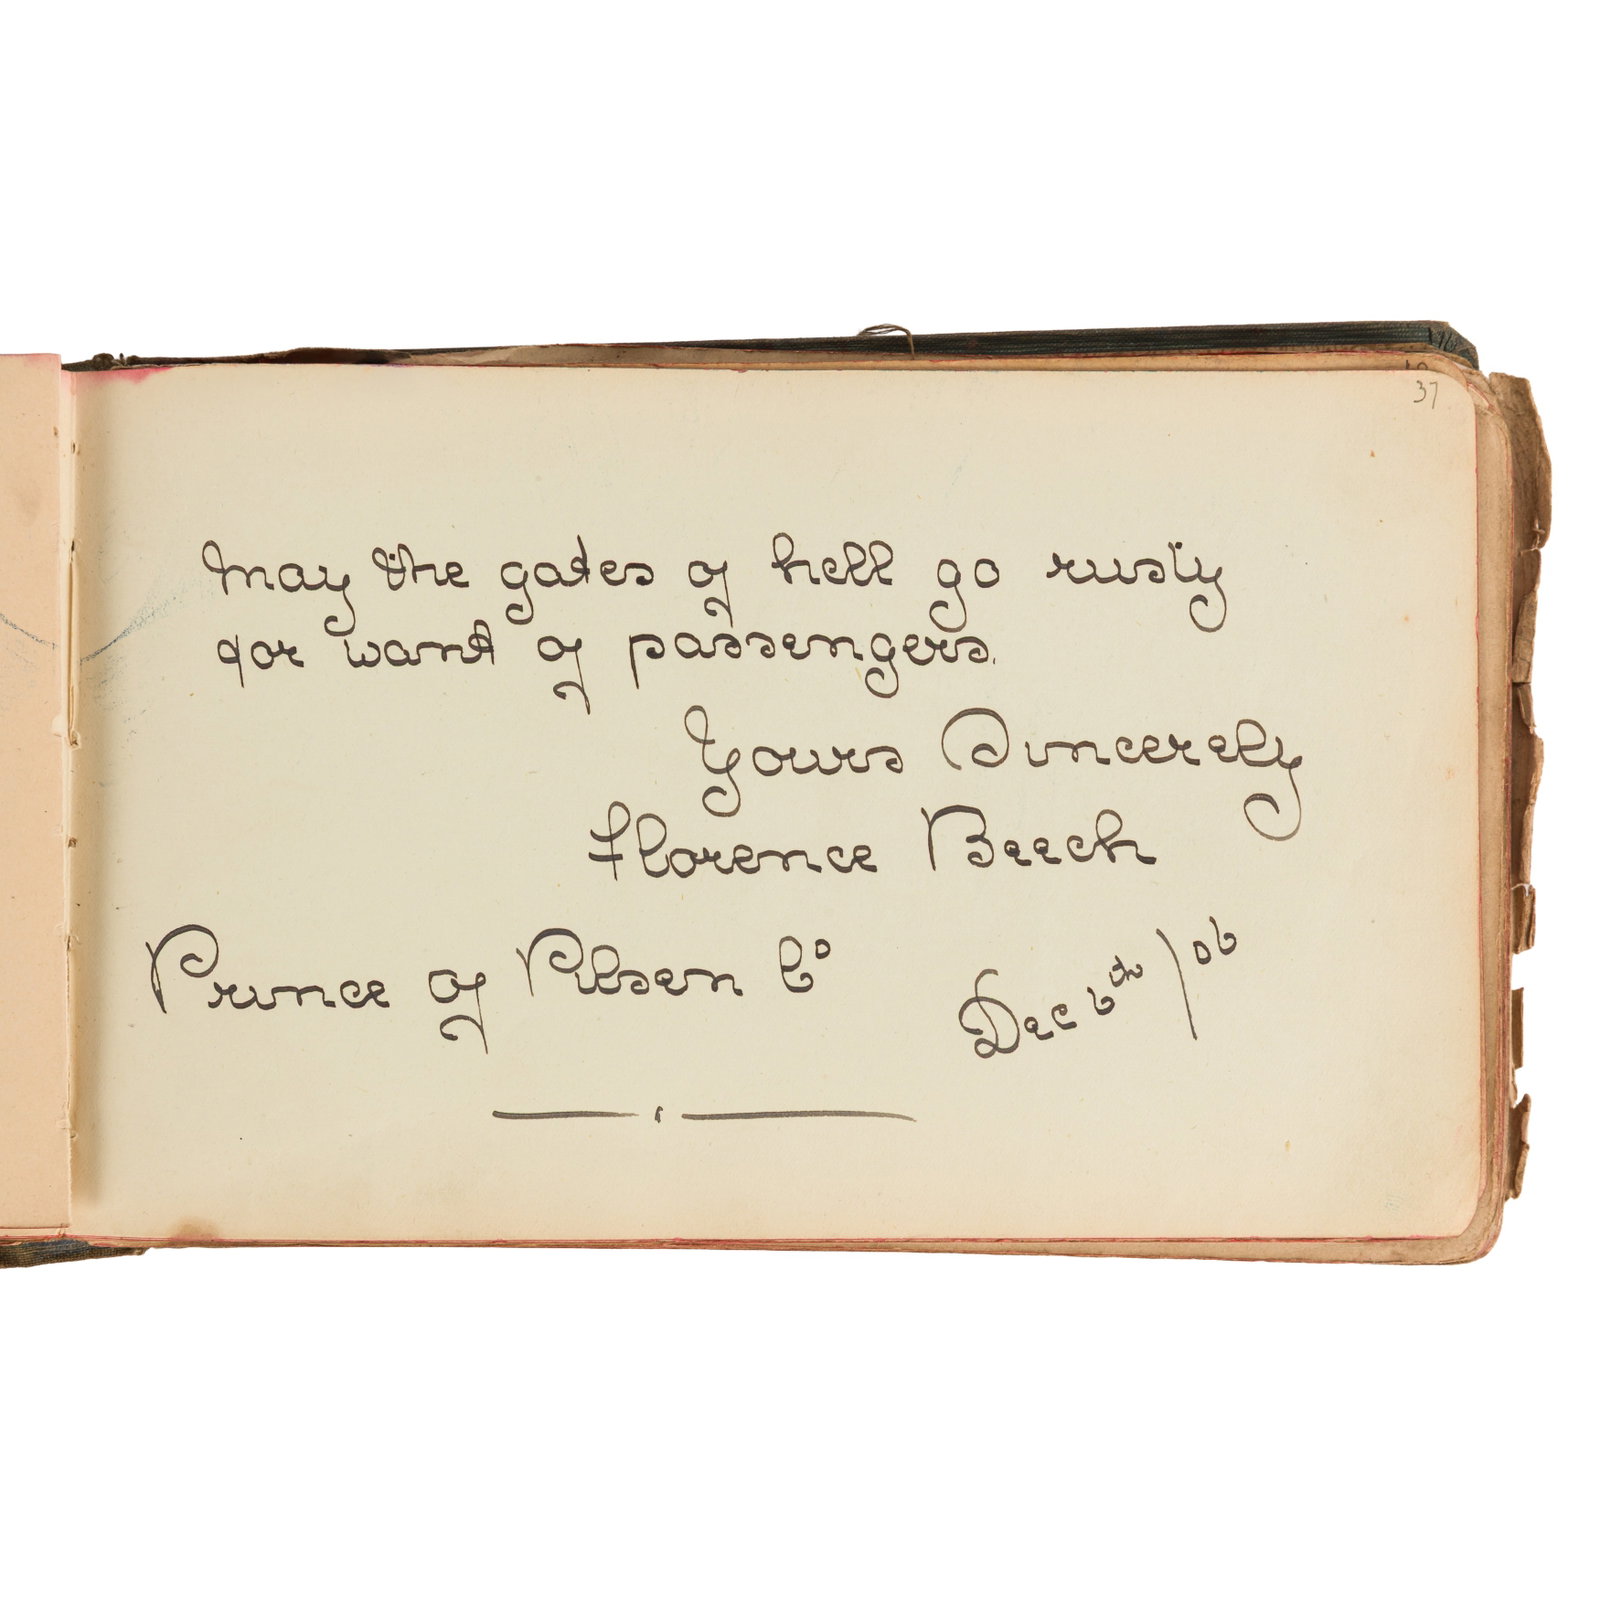 37
May the gates of hell go rusty
for want of passengers.
Yours Sincerely
Florence Beech
Prince of Pilsen Co
Dec 6th / 06